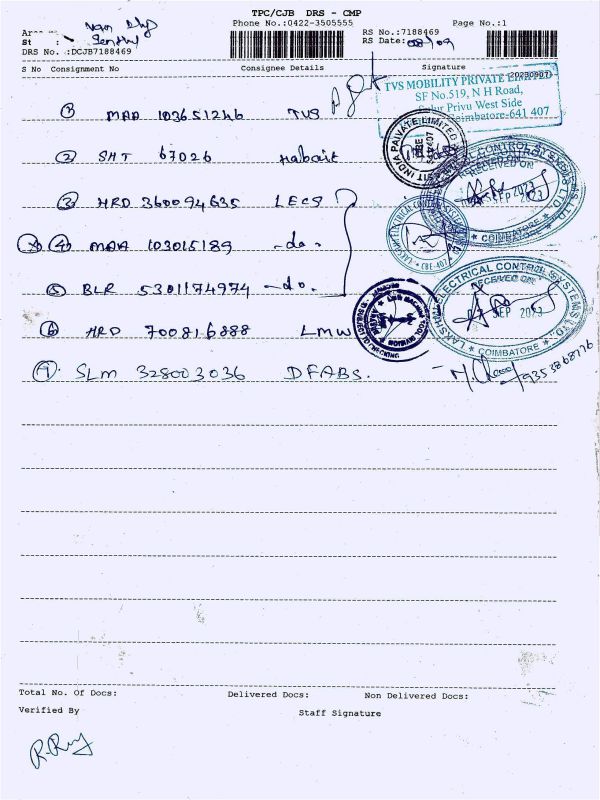 TPC/CJB DRS - CMP
Phone No.:0422-3505555 Page No.:1
RS No.:7188469
St : Senthil
RS Date: 08/09
DRS No. :DCJB7188469
S No Consignment No Consignee Details Signature
TVS MOBILITY PRIVATE LIMITED
SF No.519, N H Road,
Privu West Side
Coimbatore-641 407
1 MAA 103651246 TVS
2 SHT 67026 Habait
3 HRD 360094635 LECS
4 MAA 103015189 -do.
5 BLR 5301174974 -do.
6 HRD 700816888 LMW
7. SLM 328003036 DFABS.
LAKSHMI ELECTRICAL CONTROL SYSTEMS LTD.
RECEIVED ON
SEP 2023
COIMBATORE
LAKSHMI ELECTRICAL CONTROL SYSTEMS LTD.
RECEIVED ON
SEP 2023
COIMBATORE
9353868776
Total No. Of Docs: Delivered Docs: Non Delivered Docs:
Verified By Staff Signature